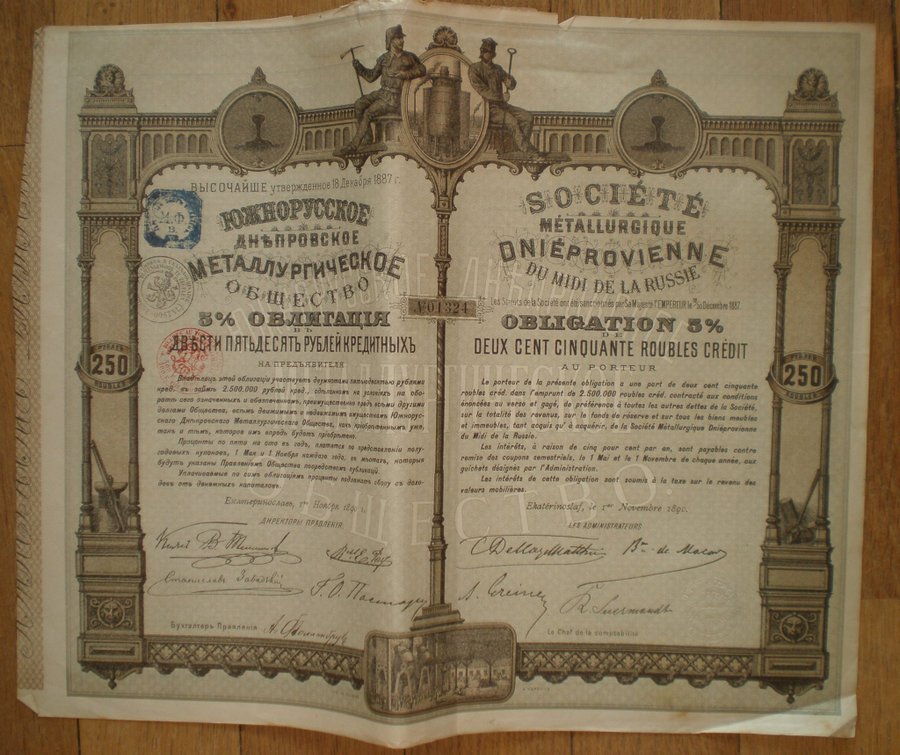 ВЫСОЧАЙШЕ утвержденное 18 Декабря 1887 г.
ЮЖНОРУССКОЕ
ДНѢПРОВСКОЕ
МЕТАЛЛУРГИЧЕСКОЕ
ОБЩЕСТВО
5% ОБЛИГАЦІЯ
ВЪ
ДВѢСТИ ПЯТЬДЕСЯТЪ РУБЛЕЙ КРЕДИТНЫХЪ
НА ПРЕДЪЯВИТЕЛЯ
Владѣлецъ этой облигаціи участвуетъ двумястами пятьюдесятью рублями
кред. въ займѣ 2.500,000 рублей кред., сдѣланномъ на условіяхъ на обо-
ротѣ сего означенныхъ и обезпеченномъ, преимущественно предъ всѣми другими
долгами Общества, всѣмъ движимымъ и недвижимымъ имуществомъ Южнорус-
скаго Днѣпровскаго Металлургическаго Общества, какъ пріобрѣтеннымъ уже,
такъ и тѣмъ, которое имъ впредь будетъ пріобрѣтено.
Проценты по пяти на сто въ годъ, платятся по представленіи полу-
годовыхъ купоновъ, 1 Мая и 1 Ноября каждаго года, въ мѣстахъ, которыя
будутъ указаны Правленіемъ Общества посредствомъ публикацій.
Уплачиваемые по симъ облигаціямъ проценты подлежатъ сбору съ дохо-
довъ отъ денежныхъ капиталовъ.
Екатеринославъ, 1го Ноября 1890 г.
ДИРЕКТОРЫ ПРАВЛЕНІЯ
Станиславъ
Бухгалтеръ Правленія
№ 01324
SOCIÉTÉ
MÉTALLURGIQUE
DNIÉPROVIENNE
DU MIDI DE LA RUSSIE
Les Statuts de la Société ont été sanctionnés par Sa Majesté l'EMPEREUR le 18/30 Décembre 1887.
OBLIGATION 5%
DE
DEUX CENT CINQUANTE ROUBLES CRÉDIT
AU PORTEUR
Le porteur de la présente obligation a une part de deux cent cinquante
roubles créd. dans l'emprunt de 2.500,000 roubles créd. contracté aux conditions
énoncées au verso et gagé, de préférence à toutes les autres dettes de la Société,
sur la totalité des revenus, sur le fonds de réserve et sur tous les biens meubles
et immeubles, tant acquis qu'à acquérir, de la Société Métallurgique Dniéprovienne
du Midi de la Russie.
Les intérêts, à raison de cinq pour cent par an, sont payables contre
remise des coupons semestriels, le 1 Mai et le 1 Novembre de chaque année, aux
guichets désignés par l'Administration.
Les intérêts de cette obligation sont soumis à la taxe sur le revenu des
valeurs mobilières.
Ekatérinoslaf, le 1er Novembre 1890.
LES ADMINISTRATEURS
Bon de Macar
Le Chef de la comptabilité
250
ROUBLES
250
ROUBLES